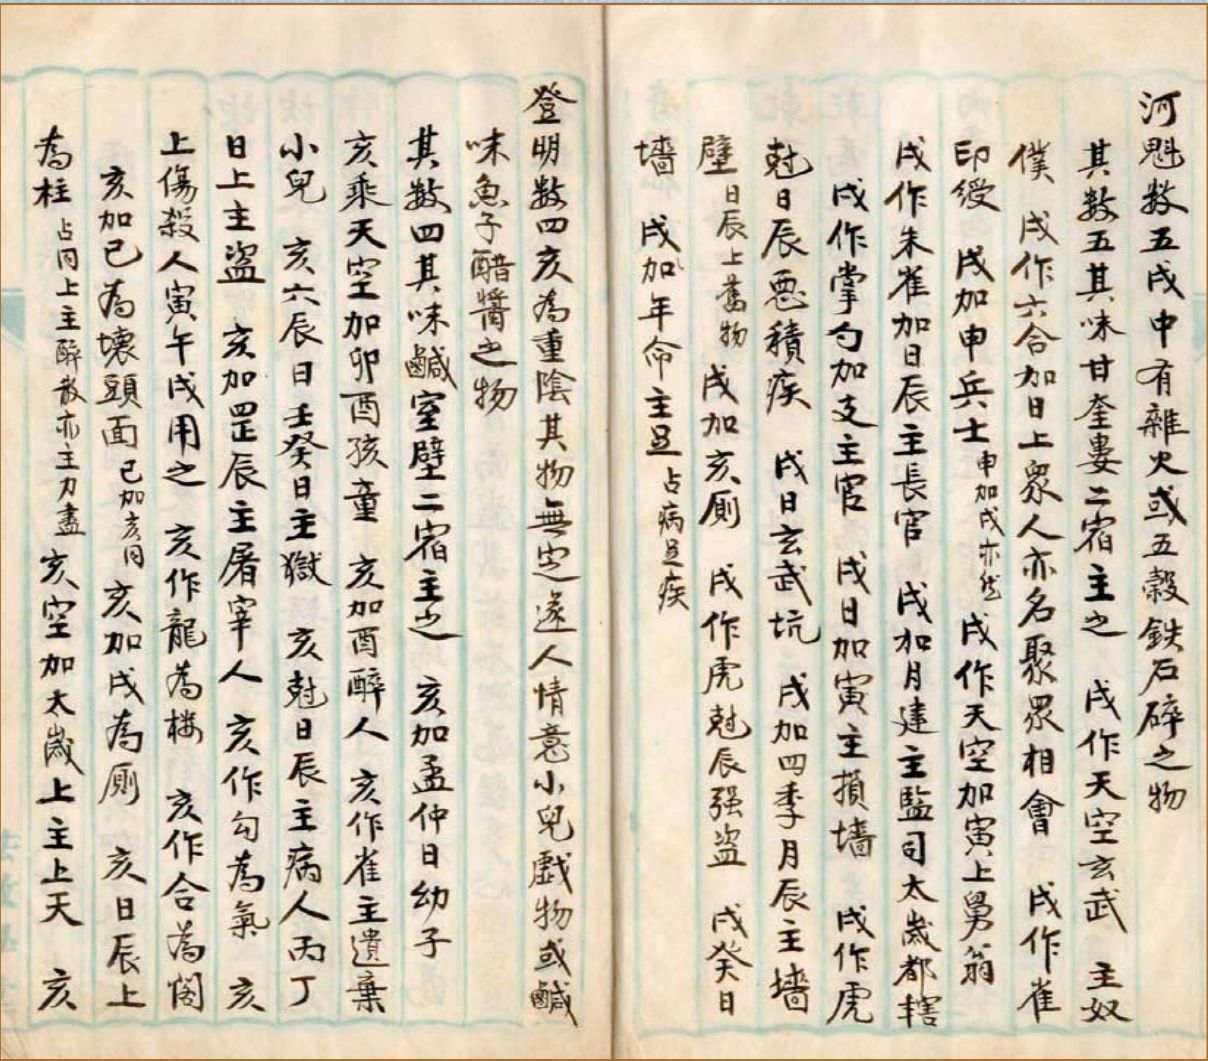 河魁数五戌中有雜火或五穀鉄石碎之物
其数五其味甘奎婁二宿主之　戌作天空玄武　主奴
僕　戌作六合加日上眾人亦名聚眾相會　戌作雀
印綬　戌加申兵士申加戌亦然　戌作天空加寅上舅翁
戌作朱雀加日辰主長官　戌加月建主監司太歲都轄
戌作掌勺加支主官　戌日加寅主損墻　戌作虎
尅日辰惡積疾　戌日玄武坑　戌加四季月辰主墻
壁日辰上舊物　戌加亥厠　戌作虎尅辰强盜　戌癸日
墻　戌加年命主足占病足疾
登明数四亥為重陰其物無定遂人情意小兒戲物或鹹
味魚子醋醬之物
其数四其味鹹室壁二宿主之　亥加孟仲日幼子
亥乘天空加卯酉孩童　亥加酉醉人　亥作雀主遺棄
小兒　亥六辰日壬癸日主獄　亥尅日辰主病人丙丁
日上主盜　亥加罡辰主屠宰人　亥作勾為氣　亥
上傷殺人寅午戌用之　亥作龍為楼　亥作合為閣
亥加巳為壊頭面巳加亥同　亥加戌為厠　亥日辰上
為柱占同上主醉散亦主刀盡　亥空加太歲上主上天　亥